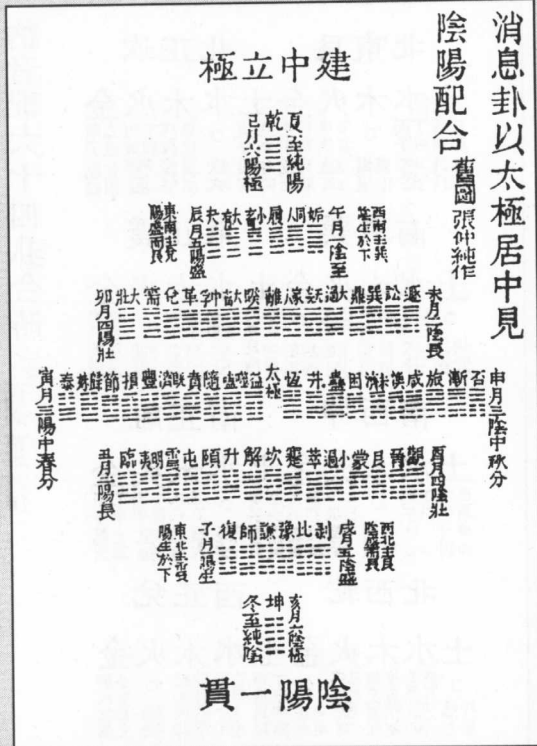 消息卦以太極居中見
陰陽配合 舊圖 張仲純作
建中立極
夏至純陽
乾
巳月六陽極
西南主巽
陰生於下
午月一陰至
姤 同人 履 小畜 大有 夬
辰月五陽盛
東南主兌
陽盛而長
未月二陰長
遯 訟 巽 鼎 大過 无妄 家人 離 睽 大畜 中孚 革 兌 需 大壯
卯月四陽壯
申月三陰中秋分
否 漸 旅 咸 渙 未濟 困 蠱 井 恆 太極 益 噬嗑 隨 賁 既濟 豐 損 節 歸妹 泰
寅月三陽中春分
酉月四陰壯
觀 晉 艮 蒙 小過 萃 蹇 坎 解 升 頤 屯 震 明夷 臨
丑月二陽長
西北主艮
陰盛而長
戌月五陰盛
剝 比 豫 謙 師 復
子月一陽生
東北主震
陽生於下
亥月六陰極
坤
冬至純陰
陰陽一貫